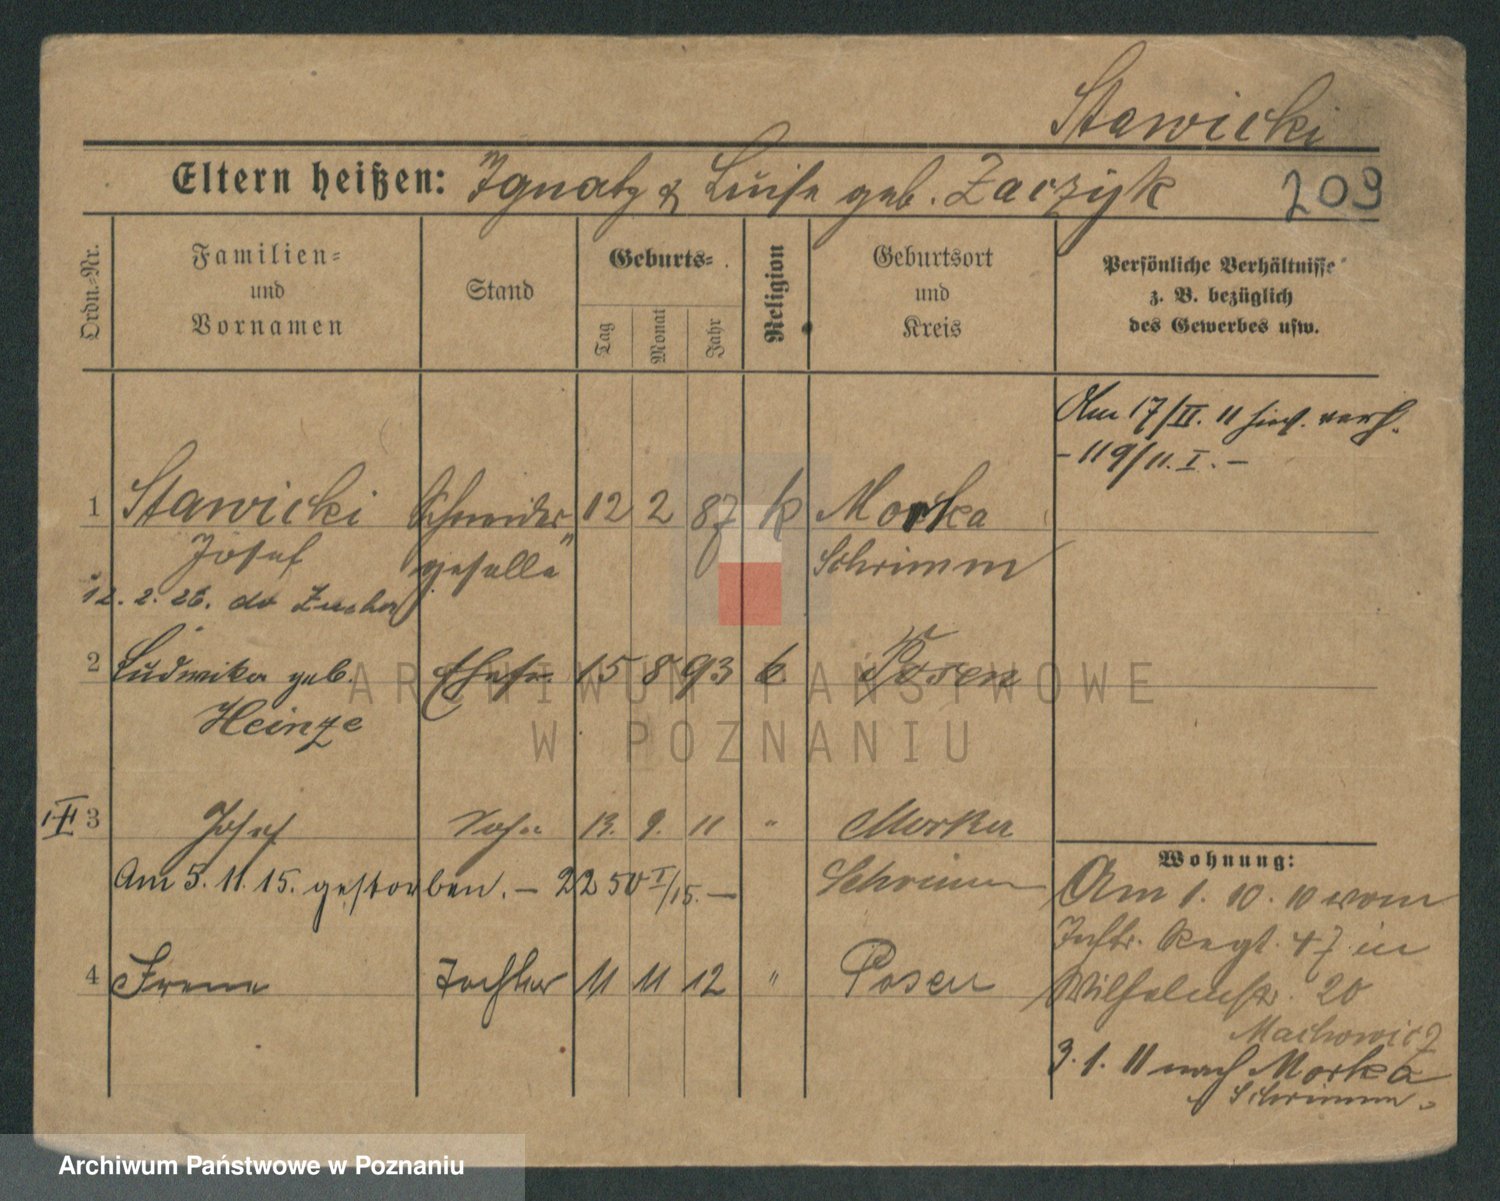 Stawicki
Eltern heißen: Ignatz & Luise geb. Zaczyk 209
Ordn.-Nr.
Familien- und Vornamen
Stand
Geburts-
Tag Monat Jahr
Religion
Geburtsort und Kreis
Persönliche Verhältnisse z. B. bezüglich des Gewerbes usw.
Am 17/II. 11 hier verh.
- 119/11. I. -
1 Stawicki Schneider 12 2 87 k Morka
Josef geselle Schrimm
12. 2. 26.
2 Ludwika geb. Ehefr. 15 8 93 k Posen
Heinze
ARCHIWUM PAŃSTWOWE
W POZNANIU
3 Josef Sohn 13. 9. 11 " Morka
Schrimm
Am 5. 11. 15. gestorben. - 2250 I/15. -
4 Irene Tochter 11 11 12 " Posen
Wohnung:
Am 1. 10. 10 vom
Inftr. Regt. 47 in
Wilhelmstr. 20
Machowicz
3. 1. 11 nach Morka
Schrimm.
Archiwum Państwowe w Poznaniu